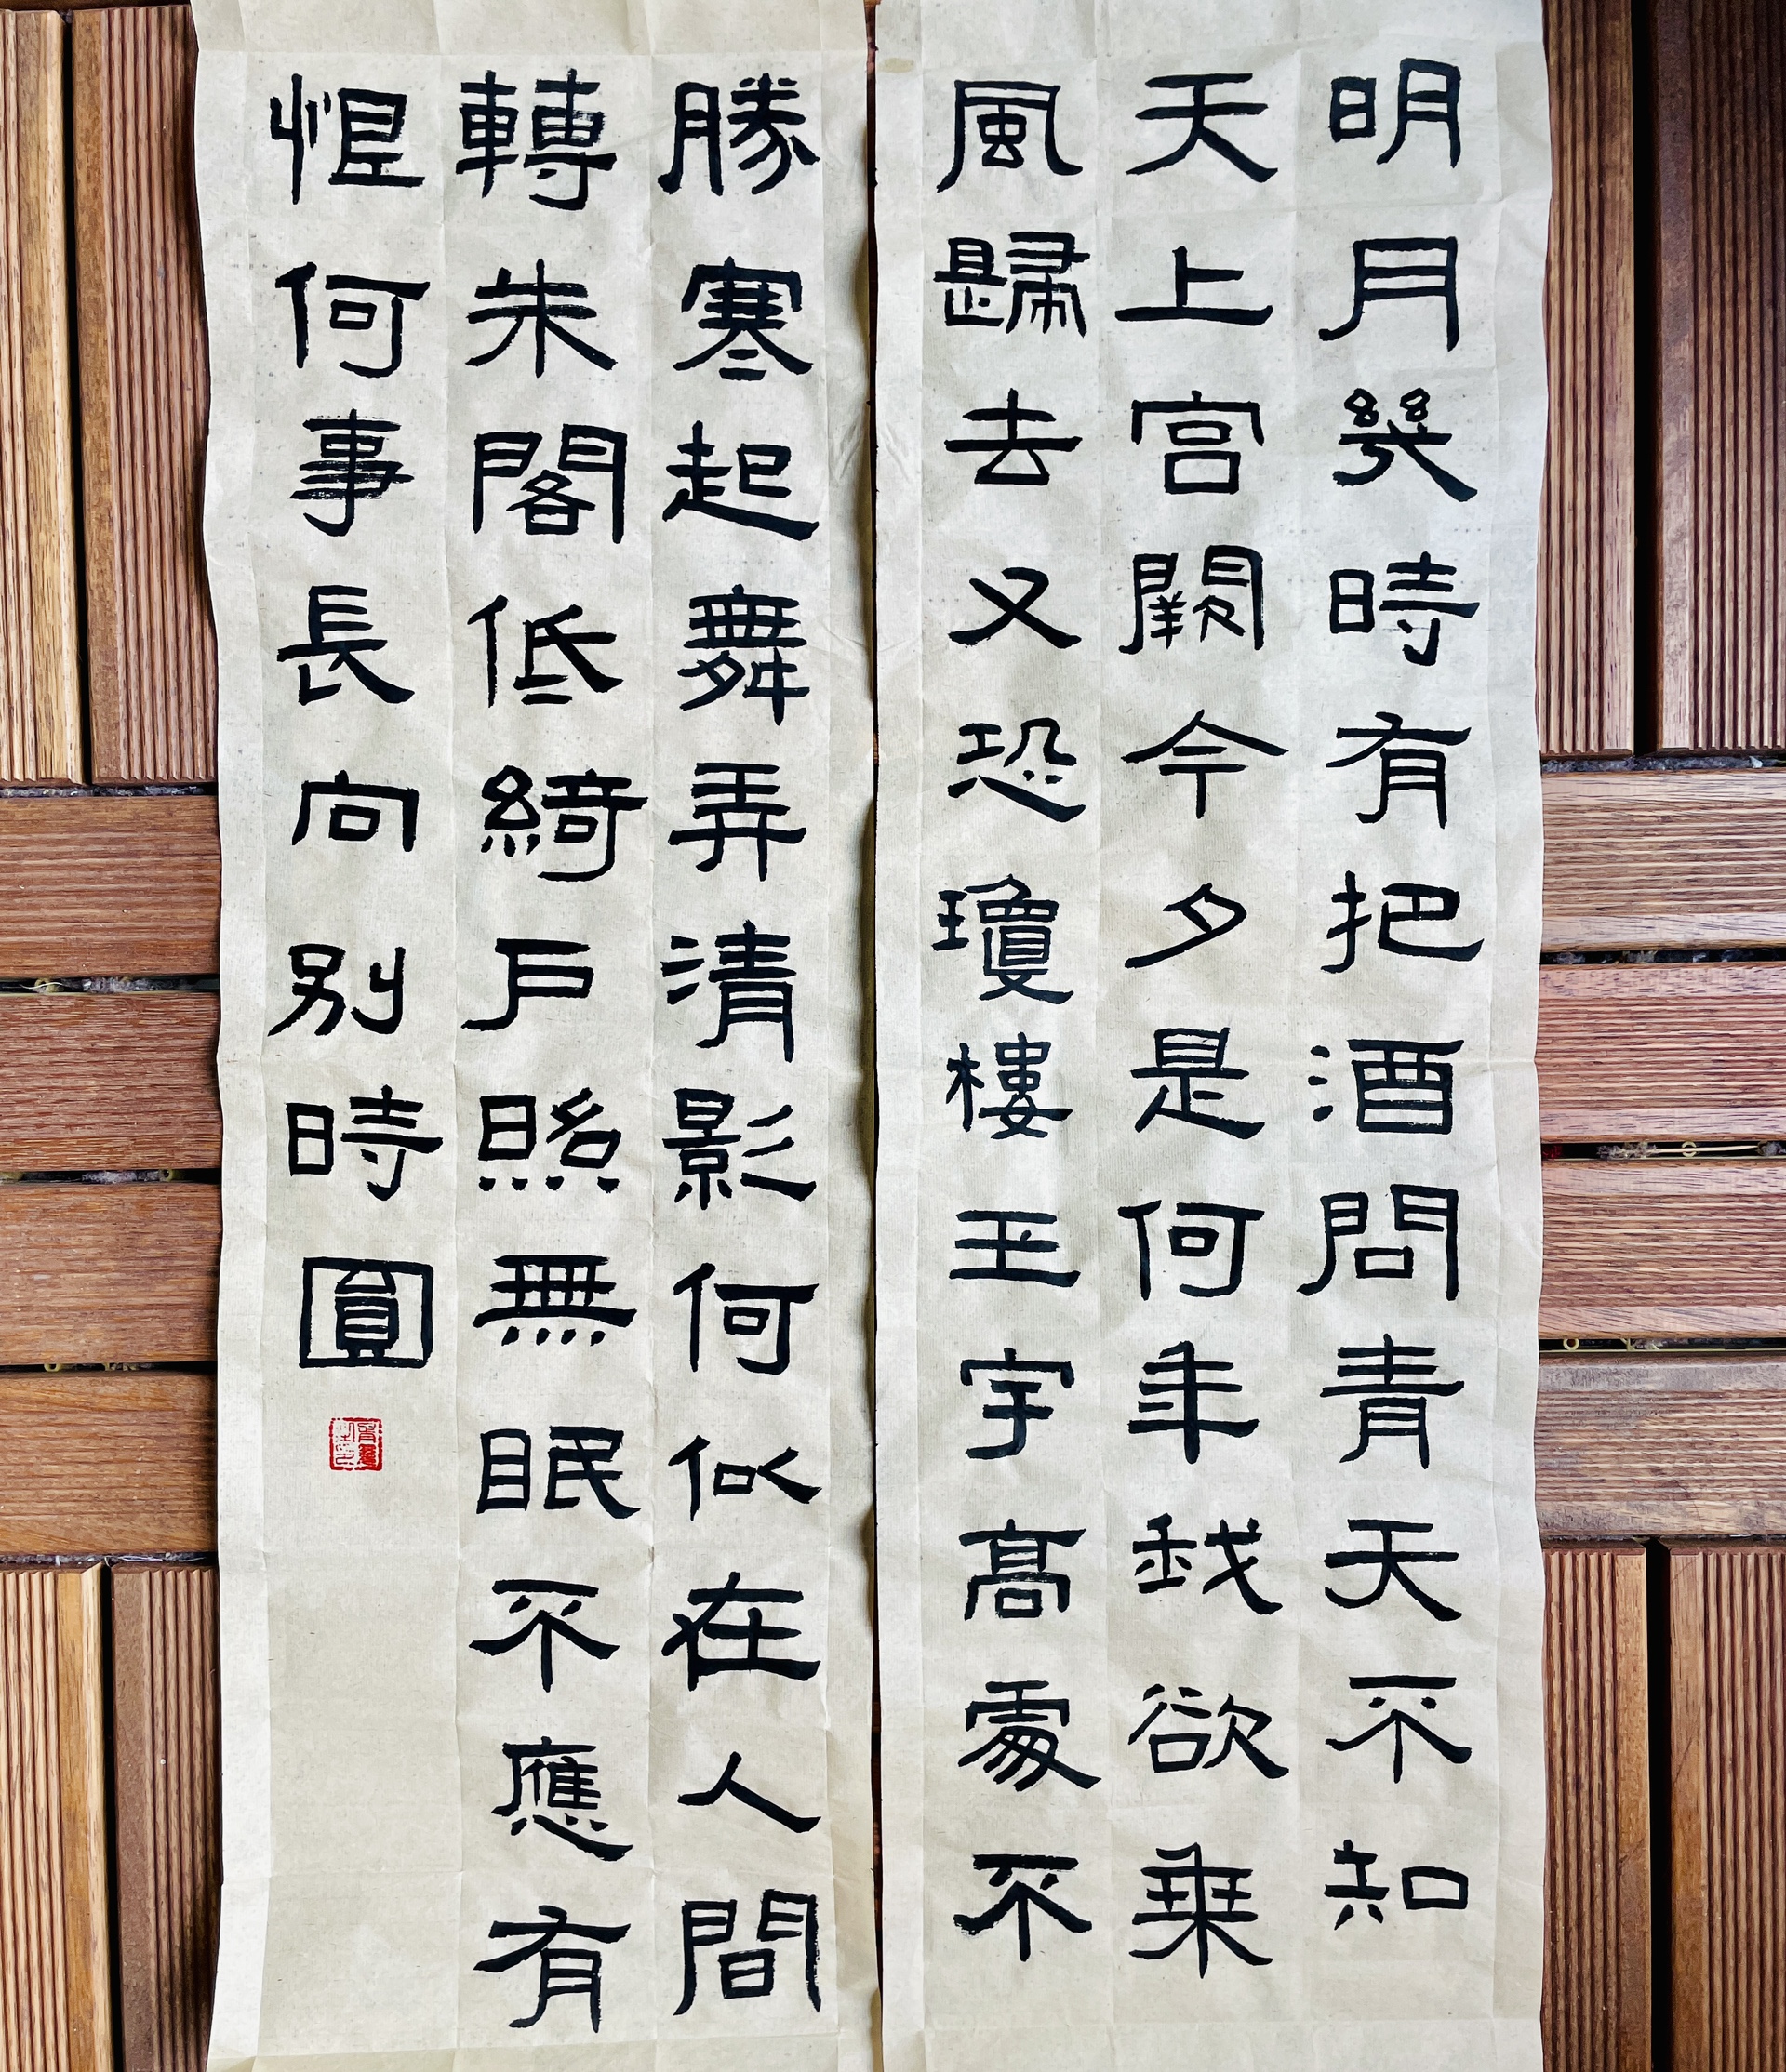 明月幾時有把酒問青天不知
天上宮闕今夕是何年我欲乗
風歸去又恐瓊樓玉宇髙處不
勝寒起舞弄清影何似在人間
轉朱閣低綺戶照無眠不應有
恨何事長向別時圓